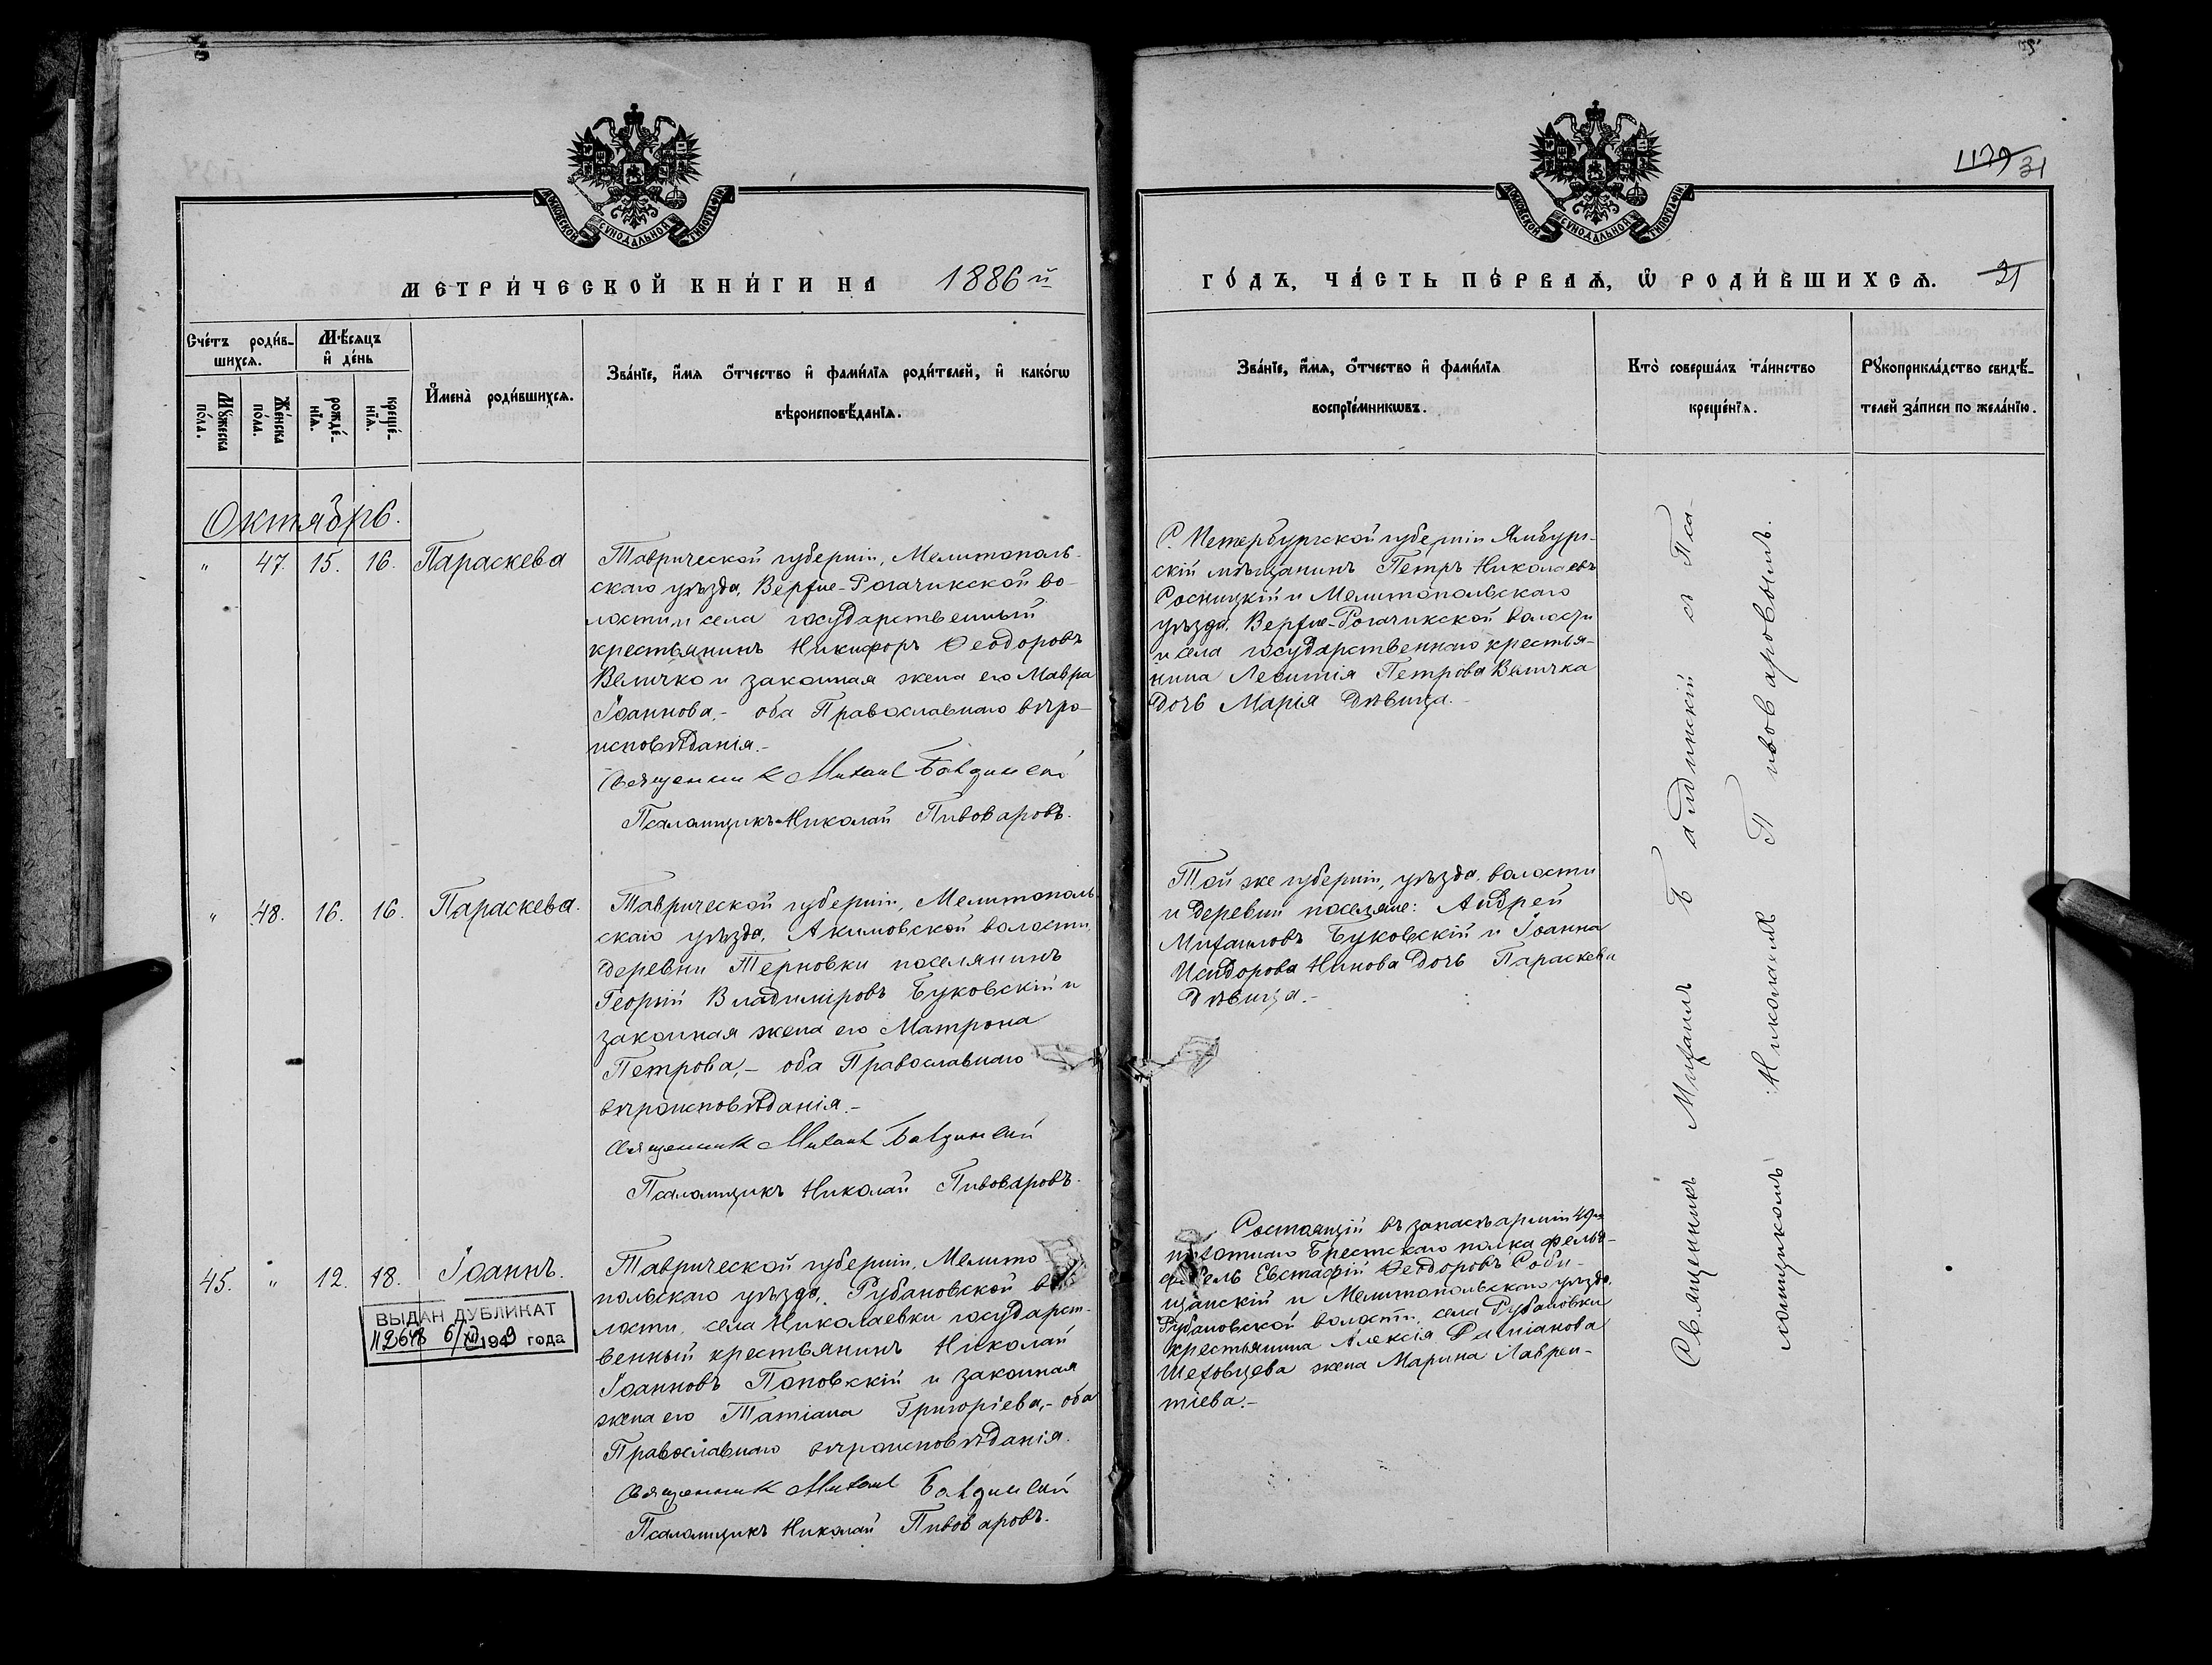 1179 31
МОСКОВСКОЙ СУНОДАЛЬНОЙ ТИПОГРАФІИ
МОСКОВСКОЙ СУНОДАЛЬНОЙ ТИПОГРАФІИ
МЕТРИ́ЧЕСКОЙ КНИ́ГИ НА 1886й
ГО́ДЪ, ЧА́СТЬ ПЕ́РВАѦ, Ѡ РОДИ́ВШИХСѦ. 31
Сче́тъ роди́в-
шихсѧ.
Мѣ́сѧцъ
и҆ де́нь
Мꙋ́жеска
по́ла.
Же́нска
по́ла.
рожде́-
нїѧ.
креще́-
нїѧ.
И҆мена̀ роди́вшихсѧ.
Зва́нїе, и҆́мѧ ѻ҆́тчество и҆ фами́лїѧ роди́телей, и҆ како́гѡ
вѣроисповѣ́данїѧ.
Зва́нїе, и҆́мѧ, ѻ҆́тчество и҆ фами́лїѧ
воспрїе́мникѡвъ.
Кто̀ соверша́лъ та́инство
креще́нїѧ.
Рꙋкоприкла́дство свидѣ́-
телей за́писи по жела́нїю.
Октябрь.
" 47. 15. 16. Параскева
Таврической губерніи, Мелитополь-
скаго уѣзда, Верхне-Рогачикской во-
лости и села государственный
крестьянинъ Никифоръ Ѳеодоровъ
Величко и законная жена его Мавра
Іоаннова,- оба Православнаго вѣро-
исповѣданія.-
Священник Михаил Балдински
Псаломщикъ Николай Пивоваровъ.
С. Петербургской губерніи Ямбург-
скій мѣщанинъ Петръ Николаевъ
Росницкій и Мелитопольскаго
уѣзда, Верхне-Рогачикской волости
и села государственнаго крестья-
нина Леонтія Петрова Величка
дочь Марія дѣвица.-
" 48. 16. 16. Параскева.
Таврической губерніи, Мелитополь-
скаго уѣзда, Акимовской волости,
деревни Терновки поселянинъ
Георгій Владиміровъ Буковскій и
законная жена его Матрона
Петрова,- оба Православнаго
вѣроисповѣданія.-
Священник Михаил Балдинскій
Псаломщикъ Николай Пивоваровъ.
Той же губерніи, уѣзда, волости
и деревни поселяне: Андрей
Михаиловъ Буковскій и Іоанна
Исидорова Нинова дочь Параскева
дѣвица.-
45. " 12. 18. Іоаннъ.
ВЫДАН ДУБЛИКАТ
6/XII 1949 года
Таврической губерніи, Мелито-
польскаго уѣзда, Рубановской во-
лости, села Николаевки государст-
венный крестьянинъ Николай
Іоанновъ Поповскій и законная
жена его Татіана Григоріева,- оба
Православнаго вѣроисповѣданія.
Священник Михаил Балдинскій
Псаломщикъ Николай Пивоваровъ.
Состоящій въ запасѣ арміи 49го
пѣхотнаго Брестскаго полка фельд-
фебель Евстафій Ѳеодоровъ Соби-
щанскій и Мелитопольскаго уѣзда,
Рубановской волости, села Рубановки
крестьянина Алексія Даміанова
Шеховцева жена Марина Лаврен-
тіева.-
Священникъ Михаилъ Балдинскій съ Пса-
ломщикомъ Николаемъ Пивоваровымъ.